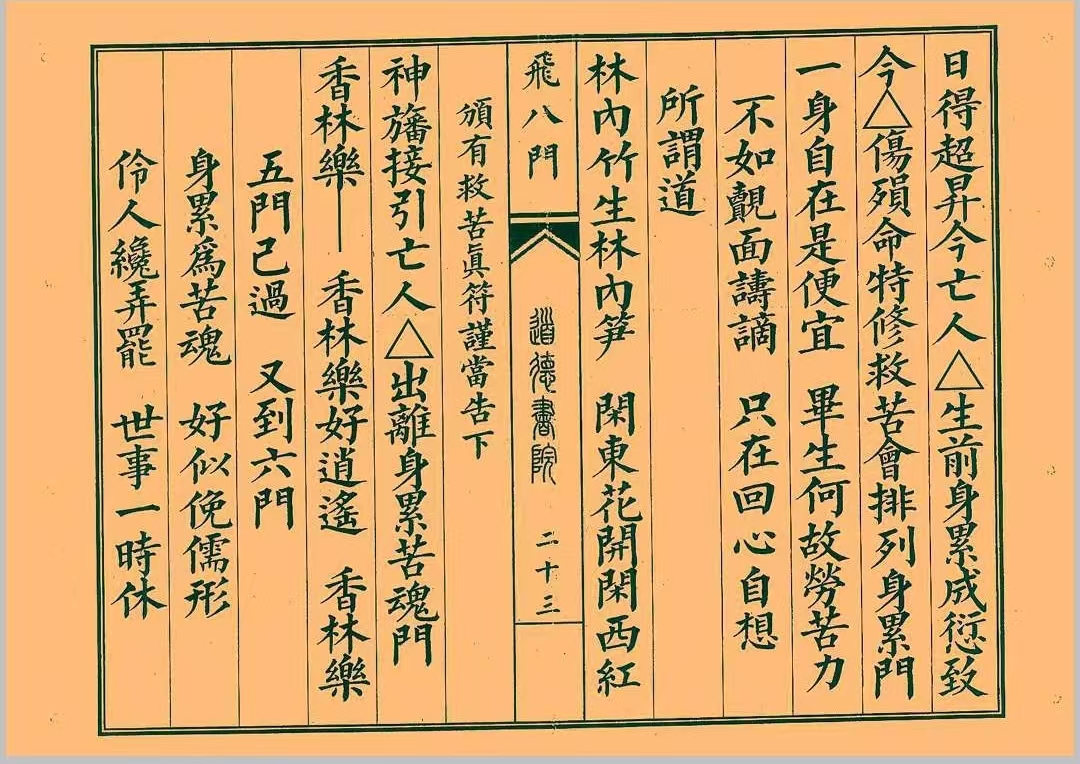 日得超昇今亡人△生前身累成愆致
今△傷殞命特修救苦會排列身累門
一身自在是便宜　畢生何故勞苦力
不如覿面譸謫　只在回心自想
所謂道
林內竹生林內笋　閑東花開閑西紅
飛八門　道德書院　二十三
頒有救苦眞符謹當告下
神旛接引亡人△出離身累苦魂門
香林樂——香林樂好逍遙　香林樂
五門已過　又到六門
身累爲苦魂　好似傀儒形
伶人纔弄罷　世事一時休